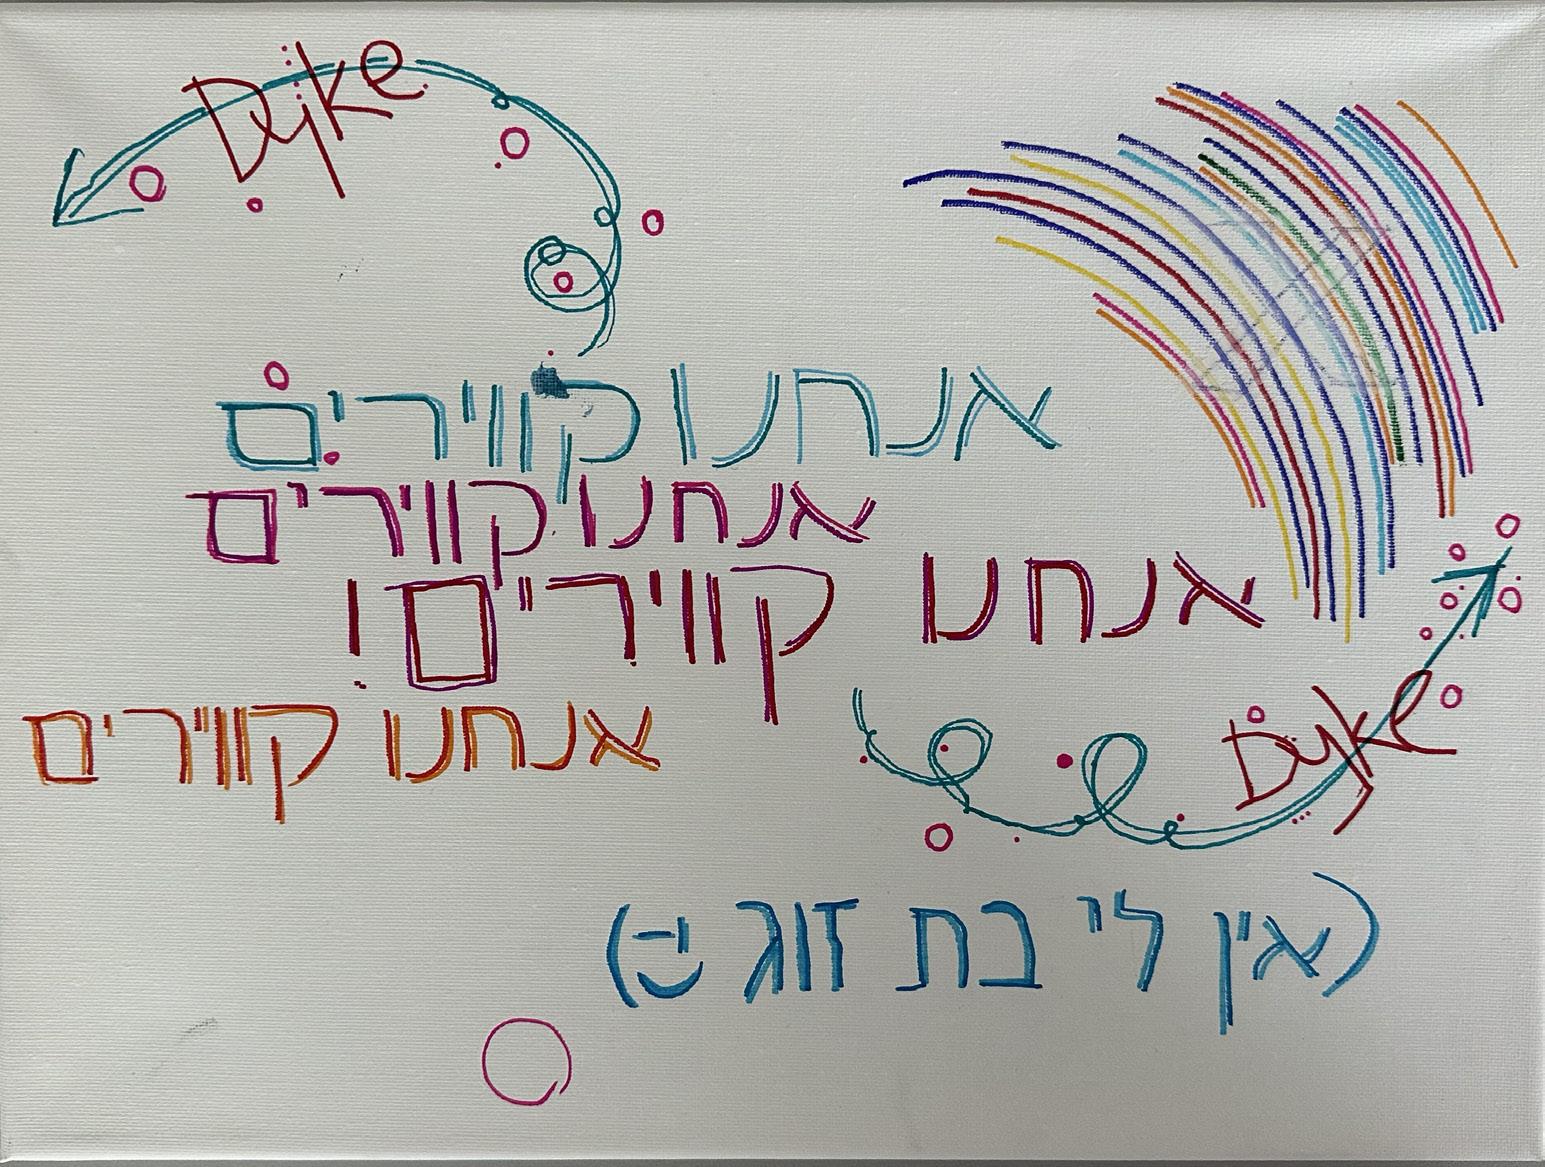 Dyke
אנחנו קווירים
אנחנו קווירים
אנחנו קווירים!
אנחנו קווירים
Dyke
(אין לי בת זוג :-))